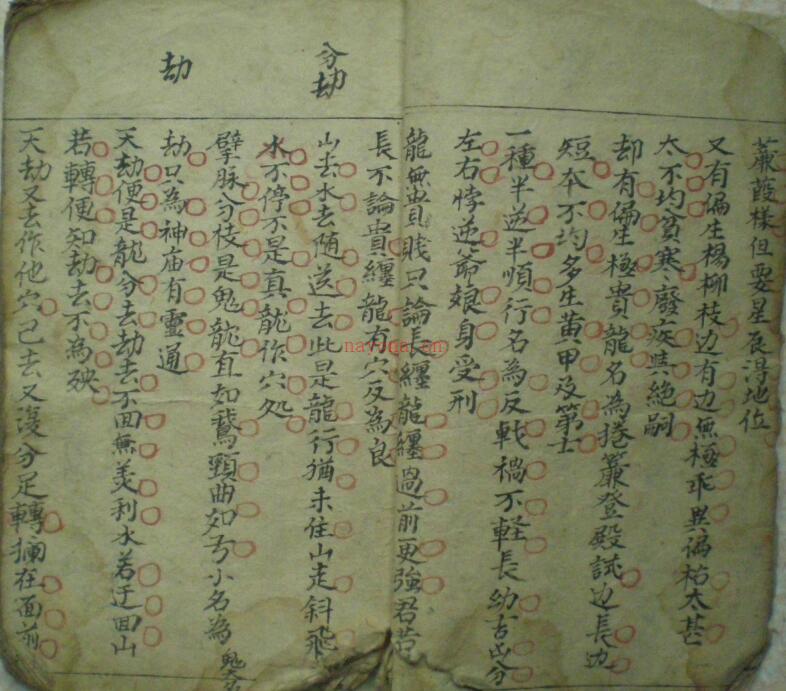 蒹葭樣但要星辰得地位
又有偏生楊柳枝边有边無極乖異偏枯太甚
太不均貧寒廢疾與絶嗣
却有偏生極貴龍名為捲簾登殿試边長边
短本不均多生黄甲及第士
一種半逆半順行名為反戟禍不輕長幼吉凶分
左右悖逆爺娘身受刑
龍無貴賤只論長纏龍纏過前更強君若
長不論貴纏龍有穴反為良
山去水去随送去此是龍行猶未住山走斜飛
水不停不是真龍作穴処
分劫
擘脉分枝是鬼龍直如鵞頸曲如弓小名為鬼
劫只為神庙有靈通
劫
天劫便是龍分去劫去不回無美利水若迂回山
若轉便知劫去不為殃
天劫又去作他穴已去又復分足轉攔在面前
nayona.cn